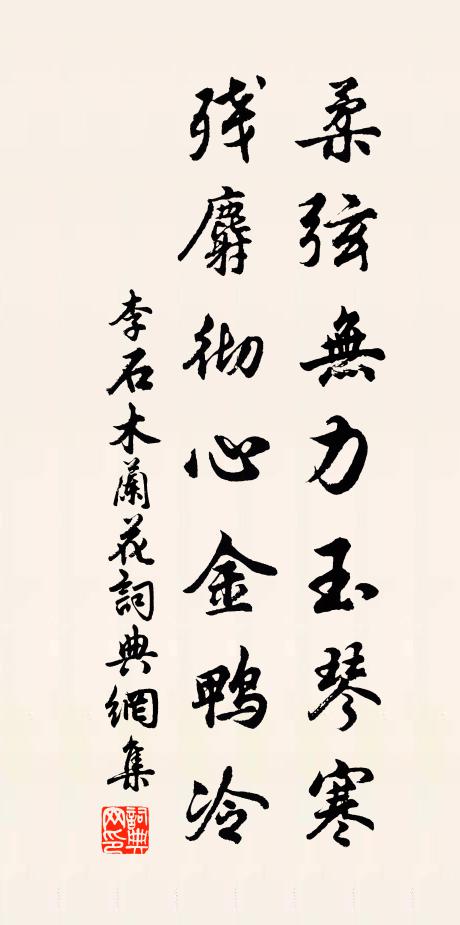 柔弦無力玉琴寒
残麝彻心金鴨冷
李石木蘭花詞典網集
詞典網印